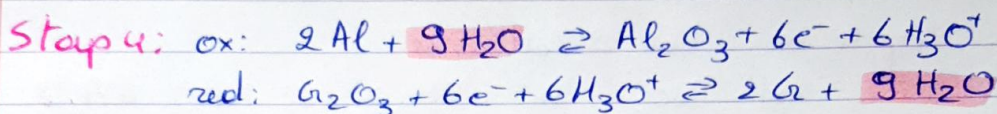 Stap 4: ox: 2 Al + 9 H₂O ⇄ Al₂O₃ + 6e⁻ + 6 H₃O⁺
red: Cr₂O₃ + 6e⁻ + 6H₃O⁺ ⇄ 2 Cr + 9 H₂O